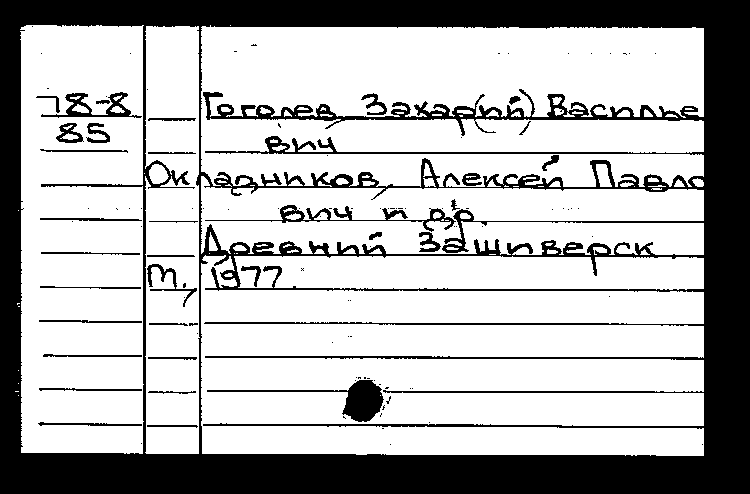 78-8
85
Гоголев, Захар(ий) Василье
вич
Окладников, Алексей Павло
вич и др.
Древний Зашиверск.
М., 1977.